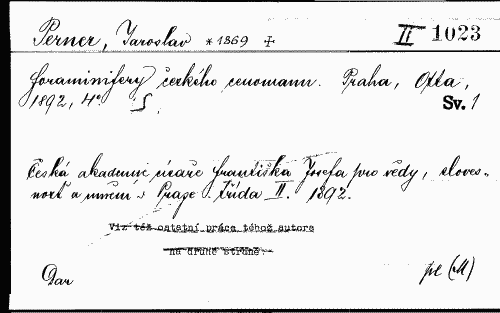 Perner, Jaroslav *1869 + II 1023
foraminifery českého cenomanu. Praha, Otta,
1892, 4°. S. Sv. 1
Česká akademie císaře Františka Josefa pro vědy, sloves-
nost a umění v Praze. třída II. 1892.
Viz též ostatní práce téhož autora
na druhé straně.
Dar